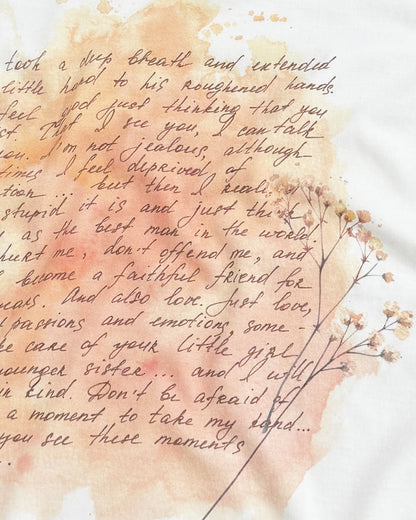 took a deep breath and extended
little hand to his roughened hands.
feel god just thinking that you
I see you, I can talk
you. I'm not jealous, although
times I feel deprived of
tion ... but then I reali
stupid it is and just think
as the best man in the world
hurt me, don't offend me, and
become a faithful friend for
years. And also love. Just love,
passions and emotions, some -
care of your little girl
younger sister... and I will
in kind. Don't be afraid of
a moment to take my hand...
you see these moments
..